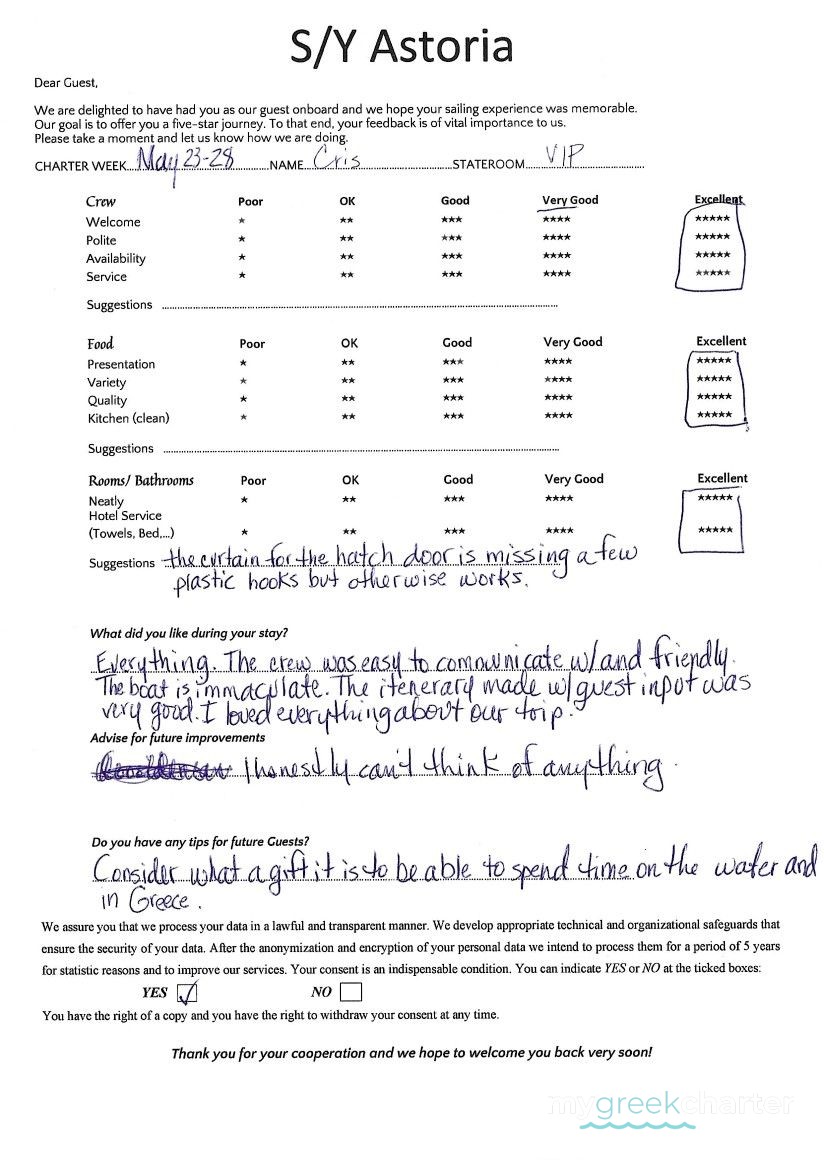 S/Y Astoria
Dear Guest,
We are delighted to have had you as our guest onboard and we hope your sailing experience was memorable.
Our goal is to offer you a five-star journey. To that end, your feedback is of vital importance to us.
Please take a moment and let us know how we are doing.
CHARTER WEEK May 23-28 NAME Cris STATEROOM VIP
Crew Poor OK Good Very Good Excellent
Welcome ★ ★★ ★★★ ★★★★ ★★★★★
Polite ★ ★★ ★★★ ★★★★ ★★★★★
Availability ★ ★★ ★★★ ★★★★ ★★★★★
Service ★ ★★ ★★★ ★★★★ ★★★★★
Suggestions
Food Poor OK Good Very Good Excellent
Presentation ★ ★★ ★★★ ★★★★ ★★★★★
Variety ★ ★★ ★★★ ★★★★ ★★★★★
Quality ★ ★★ ★★★ ★★★★ ★★★★★
Kitchen (clean) ★ ★★ ★★★ ★★★★ ★★★★★
Suggestions
Rooms/ Bathrooms Poor OK Good Very Good Excellent
Neatly ★ ★★ ★★★ ★★★★ ★★★★★
Hotel Service
(Towels, Bed,...) ★ ★★ ★★★ ★★★★ ★★★★★
Suggestions the curtain for the hatch door is missing a few
plastic hooks but otherwise works.
What did you like during your stay?
Everything. The crew was easy to communicate w/ and friendly.
The boat is immaculate. The itenerary made w/ guest input was
very good. I loved everything about our trip.
Advise for future improvements
I honestly can't think of anything.
Do you have any tips for future Guests?
Consider what a gift it is to be able to spend time on the water and
in Greece.
We assure you that we process your data in a lawful and transparent manner. We develop appropriate technical and organizational safeguards that
ensure the security of your data. After the anonymization and encryption of your personal data we intend to process them for a period of 5 years
for statistic reasons and to improve our services. Your consent is an indispensable condition. You can indicate YES or NO at the ticked boxes:
YES NO
You have the right of a copy and you have the right to withdraw your consent at any time.
Thank you for your cooperation and we hope to welcome you back very soon!
mygreekcharter